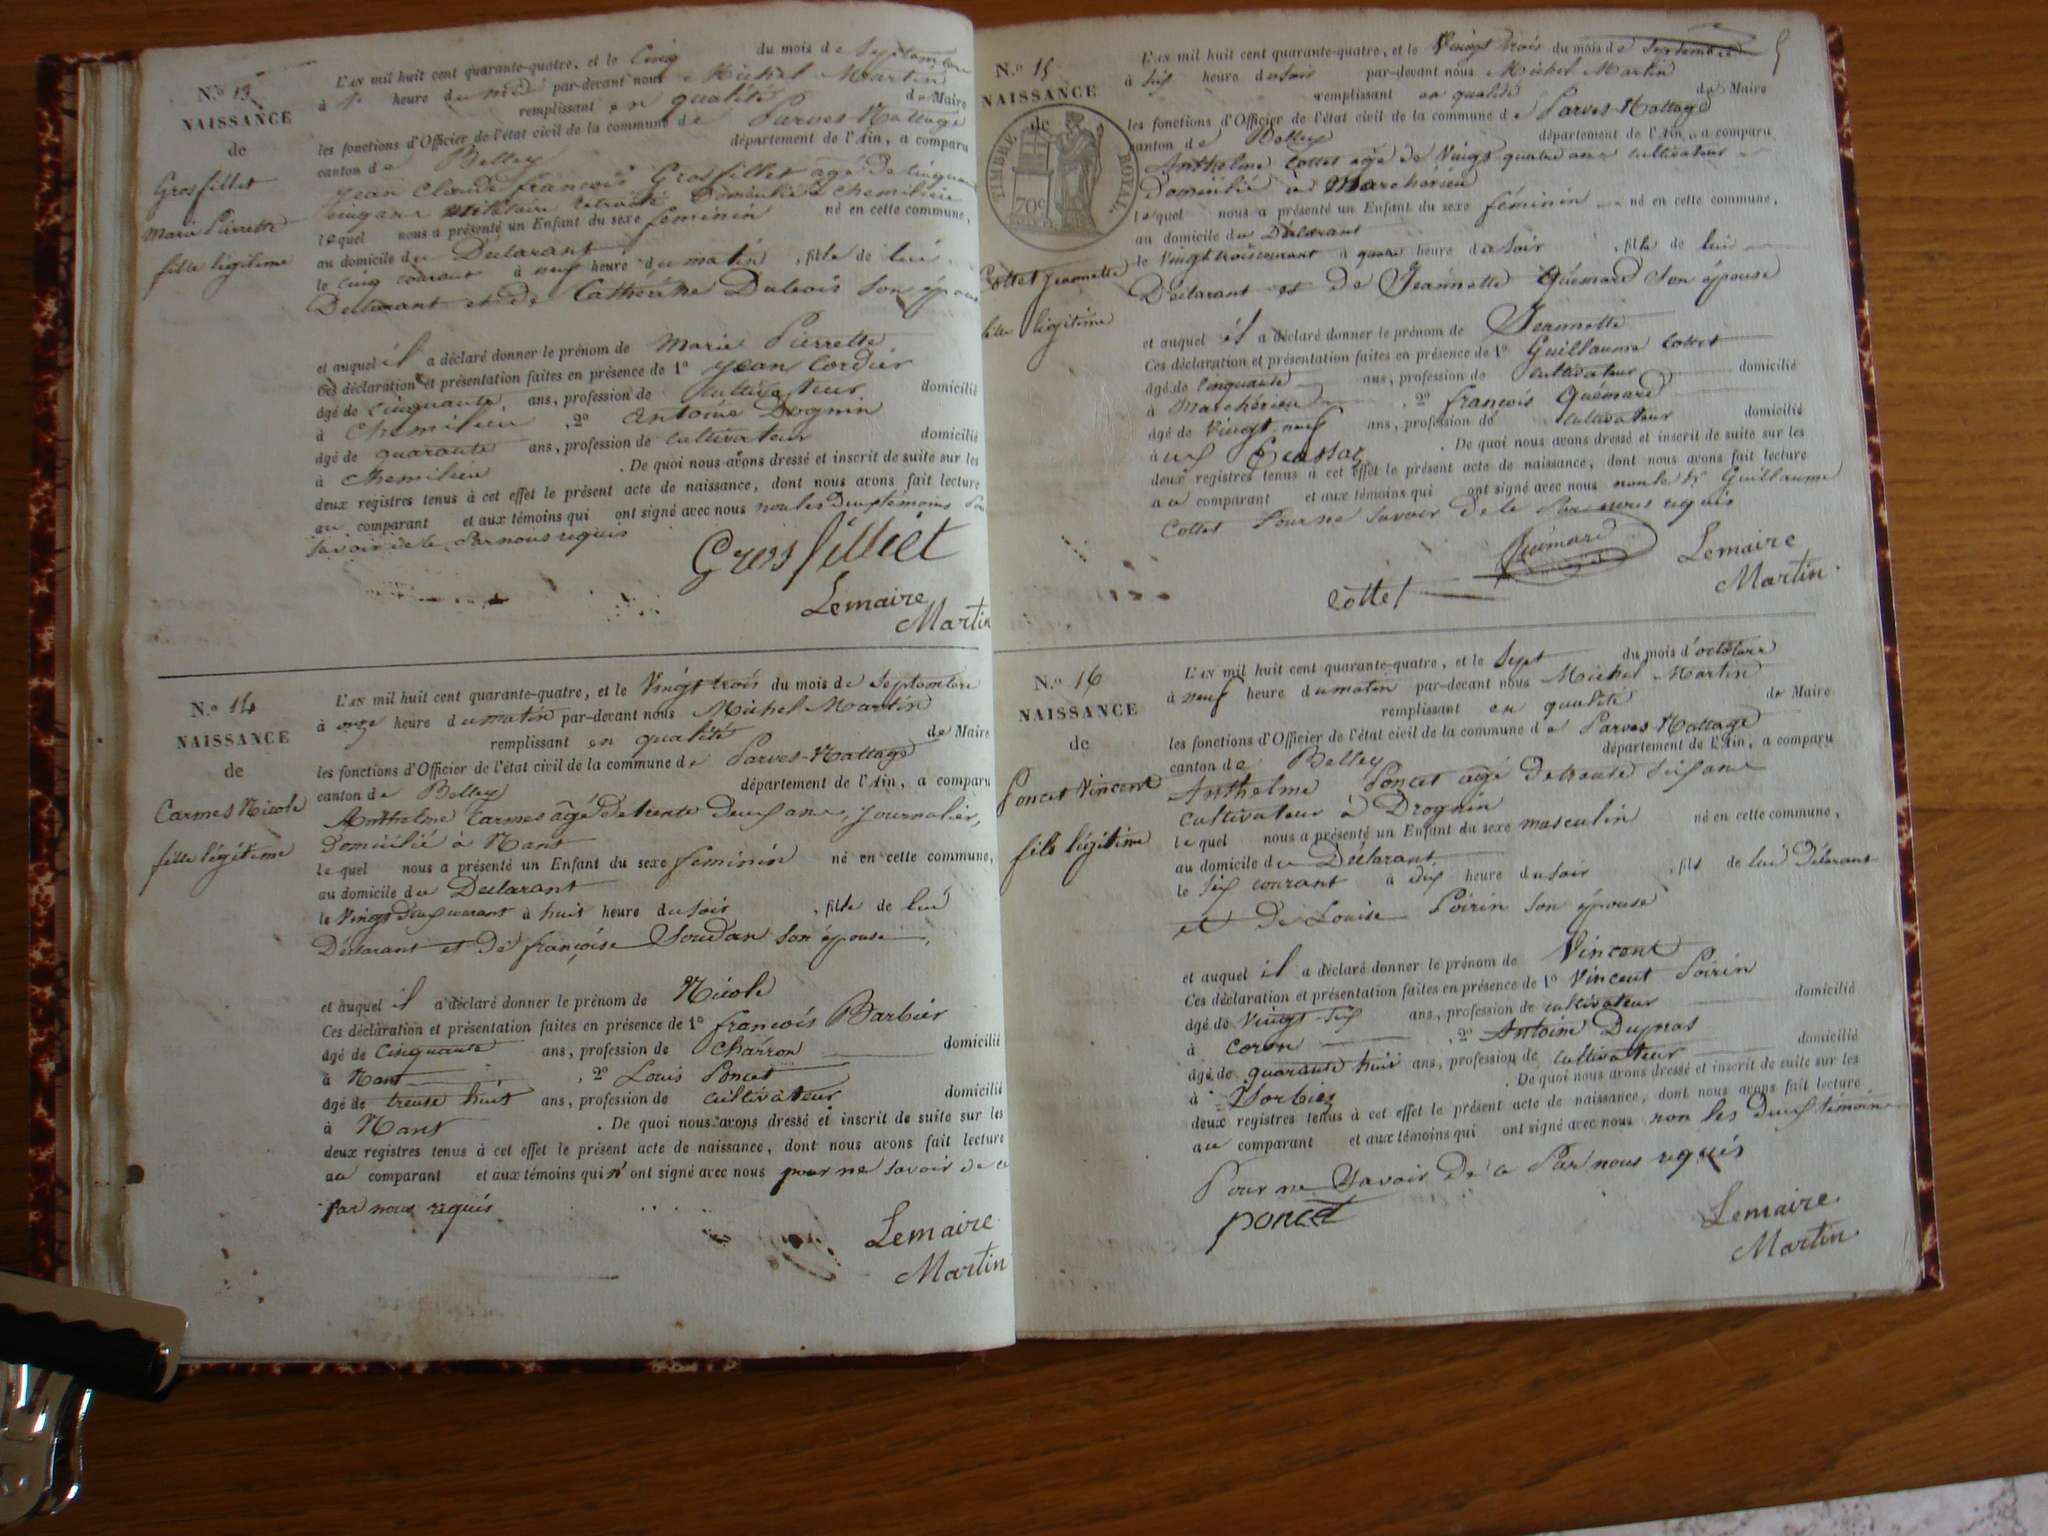 N.º 13
NAISSANCE
de
Grosfillet
Marie Pierrette
fille légitime
L'AN mil huit cent quarante-quatre, et le Cinq du mois de Septembre
à heure du par-devant nous Michel Martin
remplissant en qualité de Maire
les fonctions d'Officier de l'état civil de la commune de Parves-Nattage
canton de Belley département de l'Ain, a comparu
Jean Claude françois Grosfillet agé de Cinquante
Cinq ans Militaire retraité Domicilié à Chemilieu
lequel nous a présenté un Enfant du sexe féminin né en cette commune,
au domicile du Déclarant
le cinq courant à neuf heure du matin, fille de lui
Déclarant et de Catherine Dubois Son épouse
et auquel il a déclaré donner le prénom de Marie Pierrette
Ces déclaration et présentation faites en présence de 1º Jean Cordier
âgé de Cinquante ans, profession de Cultivateur domicilié
à Chemilieu, 2º Antoine Dognin
âgé de quarante ans, profession de cultivateur domicilié
à Chemilieu. De quoi nous avons dressé et inscrit de suite sur les
deux registres tenus à cet effet le présent acte de naissance, dont nous avons fait lecture
au comparant et aux témoins qui ont signé avec nous non les Deux témoins
Savoir de le Par nous requis
Grosfilliet
Lemaire
Martin
N.º 14
NAISSANCE
de
Carmes Nicole
fille légitime
L'AN mil huit cent quarante-quatre, et le Vingt trois du mois de Septembre
à onze heure du matin par-devant nous Michel Martin
remplissant en qualité de Maire
les fonctions d'Officier de l'état civil de la commune de Parves-Nattage
canton de Belley département de l'Ain, a comparu
Anthelme Carmes âgé de trente Deux ans, Journalier,
Domicilié à Nant
lequel nous a présenté un Enfant du sexe féminin né en cette commune,
au domicile du Déclarant
le Vingt Deux courant à huit heure du soir, fille de lui
Déclarant et de françoise Soudan son épouse,
et auquel il a déclaré donner le prénom de Nicole
Ces déclaration et présentation faites en présence de 1º françois Barbier
âgé de Cinquante ans, profession de Charron domicilié
à Nant, 2º Louis Poncet
âgé de trente huit ans, profession de cultivateur domicilié
à Nant. De quoi nous avons dressé et inscrit de suite sur les
deux registres tenus à cet effet le présent acte de naissance, dont nous avons fait lecture
au comparant et aux témoins qui n'ont signé avec nous pour ne savoir de ce
par nous requis
Lemaire
Martin
5
N.º 15
NAISSANCE
de
TIMBRE ROYAL
70 c
Cottet Jeannette
fille légitime
L'AN mil huit cent quarante-quatre, et le Vingt trois du mois de Septembre
à six heure du soir par-devant nous Michel Martin
remplissant en qualité de Maire
les fonctions d'Officier de l'état civil de la commune de Parves-Nattage
canton de Belley département de l'Ain, a comparu
Anthelme Cottet agé de Vingt quatre ans cultivateur
Domicilié à Marchérieu
lequel nous a présenté un Enfant du sexe féminin né en cette commune,
au domicile du Déclarant
le Vingt trois courant à quatre heure du soir, fille de lui
Déclarant et de Jeannette Quémard Son épouse
et auquel il a déclaré donner le prénom de Jeannette
Ces déclaration et présentation faites en présence de 1º Guillaume Cottet
âgé de Cinquante ans, profession de cultivateur domicilié
à Marchérieu, 2º françois Quémard
âgé de Vingt-neuf ans, profession de cultivateur domicilié
à. De quoi nous avons dressé et inscrit de suite sur les
deux registres tenus à cet effet le présent acte de naissance, dont nous avons fait lecture
au comparant et aux témoins qui ont signé avec nous Guillaume
Cottet Pour ne savoir de le Par nous requis
Quémard
Cottet
Lemaire
Martin
N.º 16
NAISSANCE
de
Poncet Vincent
fils légitime
L'AN mil huit cent quarante-quatre, et le Sept du mois d'octobre
à neuf heure du matin par-devant nous Michel Martin
remplissant en qualité de Maire
les fonctions d'Officier de l'état civil de la commune de Parves-Nattage
canton de Belley département de l'Ain, a comparu
Anthelme Poncet agé de trente six ans
cultivateur à Drognin
lequel nous a présenté un Enfant du sexe masculin né en cette commune,
au domicile du Déclarant
le six courant à dix heure du soir, fils de lui Déclarant
et de Louise Poirin son épouse
et auquel il a déclaré donner le prénom de Vincent
Ces déclaration et présentation faites en présence de 1º Vincent Poirin
âgé de Vingt-six ans, profession de cultivateur domicilié
à Coron, 2º Antoine
âgé de quarante huit ans, profession de cultivateur domicilié
à Sorbier. De quoi nous avons dressé et inscrit de suite sur les
deux registres tenus à cet effet le présent acte de naissance, dont nous avons fait lecture
au comparant et aux témoins qui ont signé avec nous non les deux témoins
Pour ne Savoir De ce Par nous requis
poncet
Lemaire
Martin